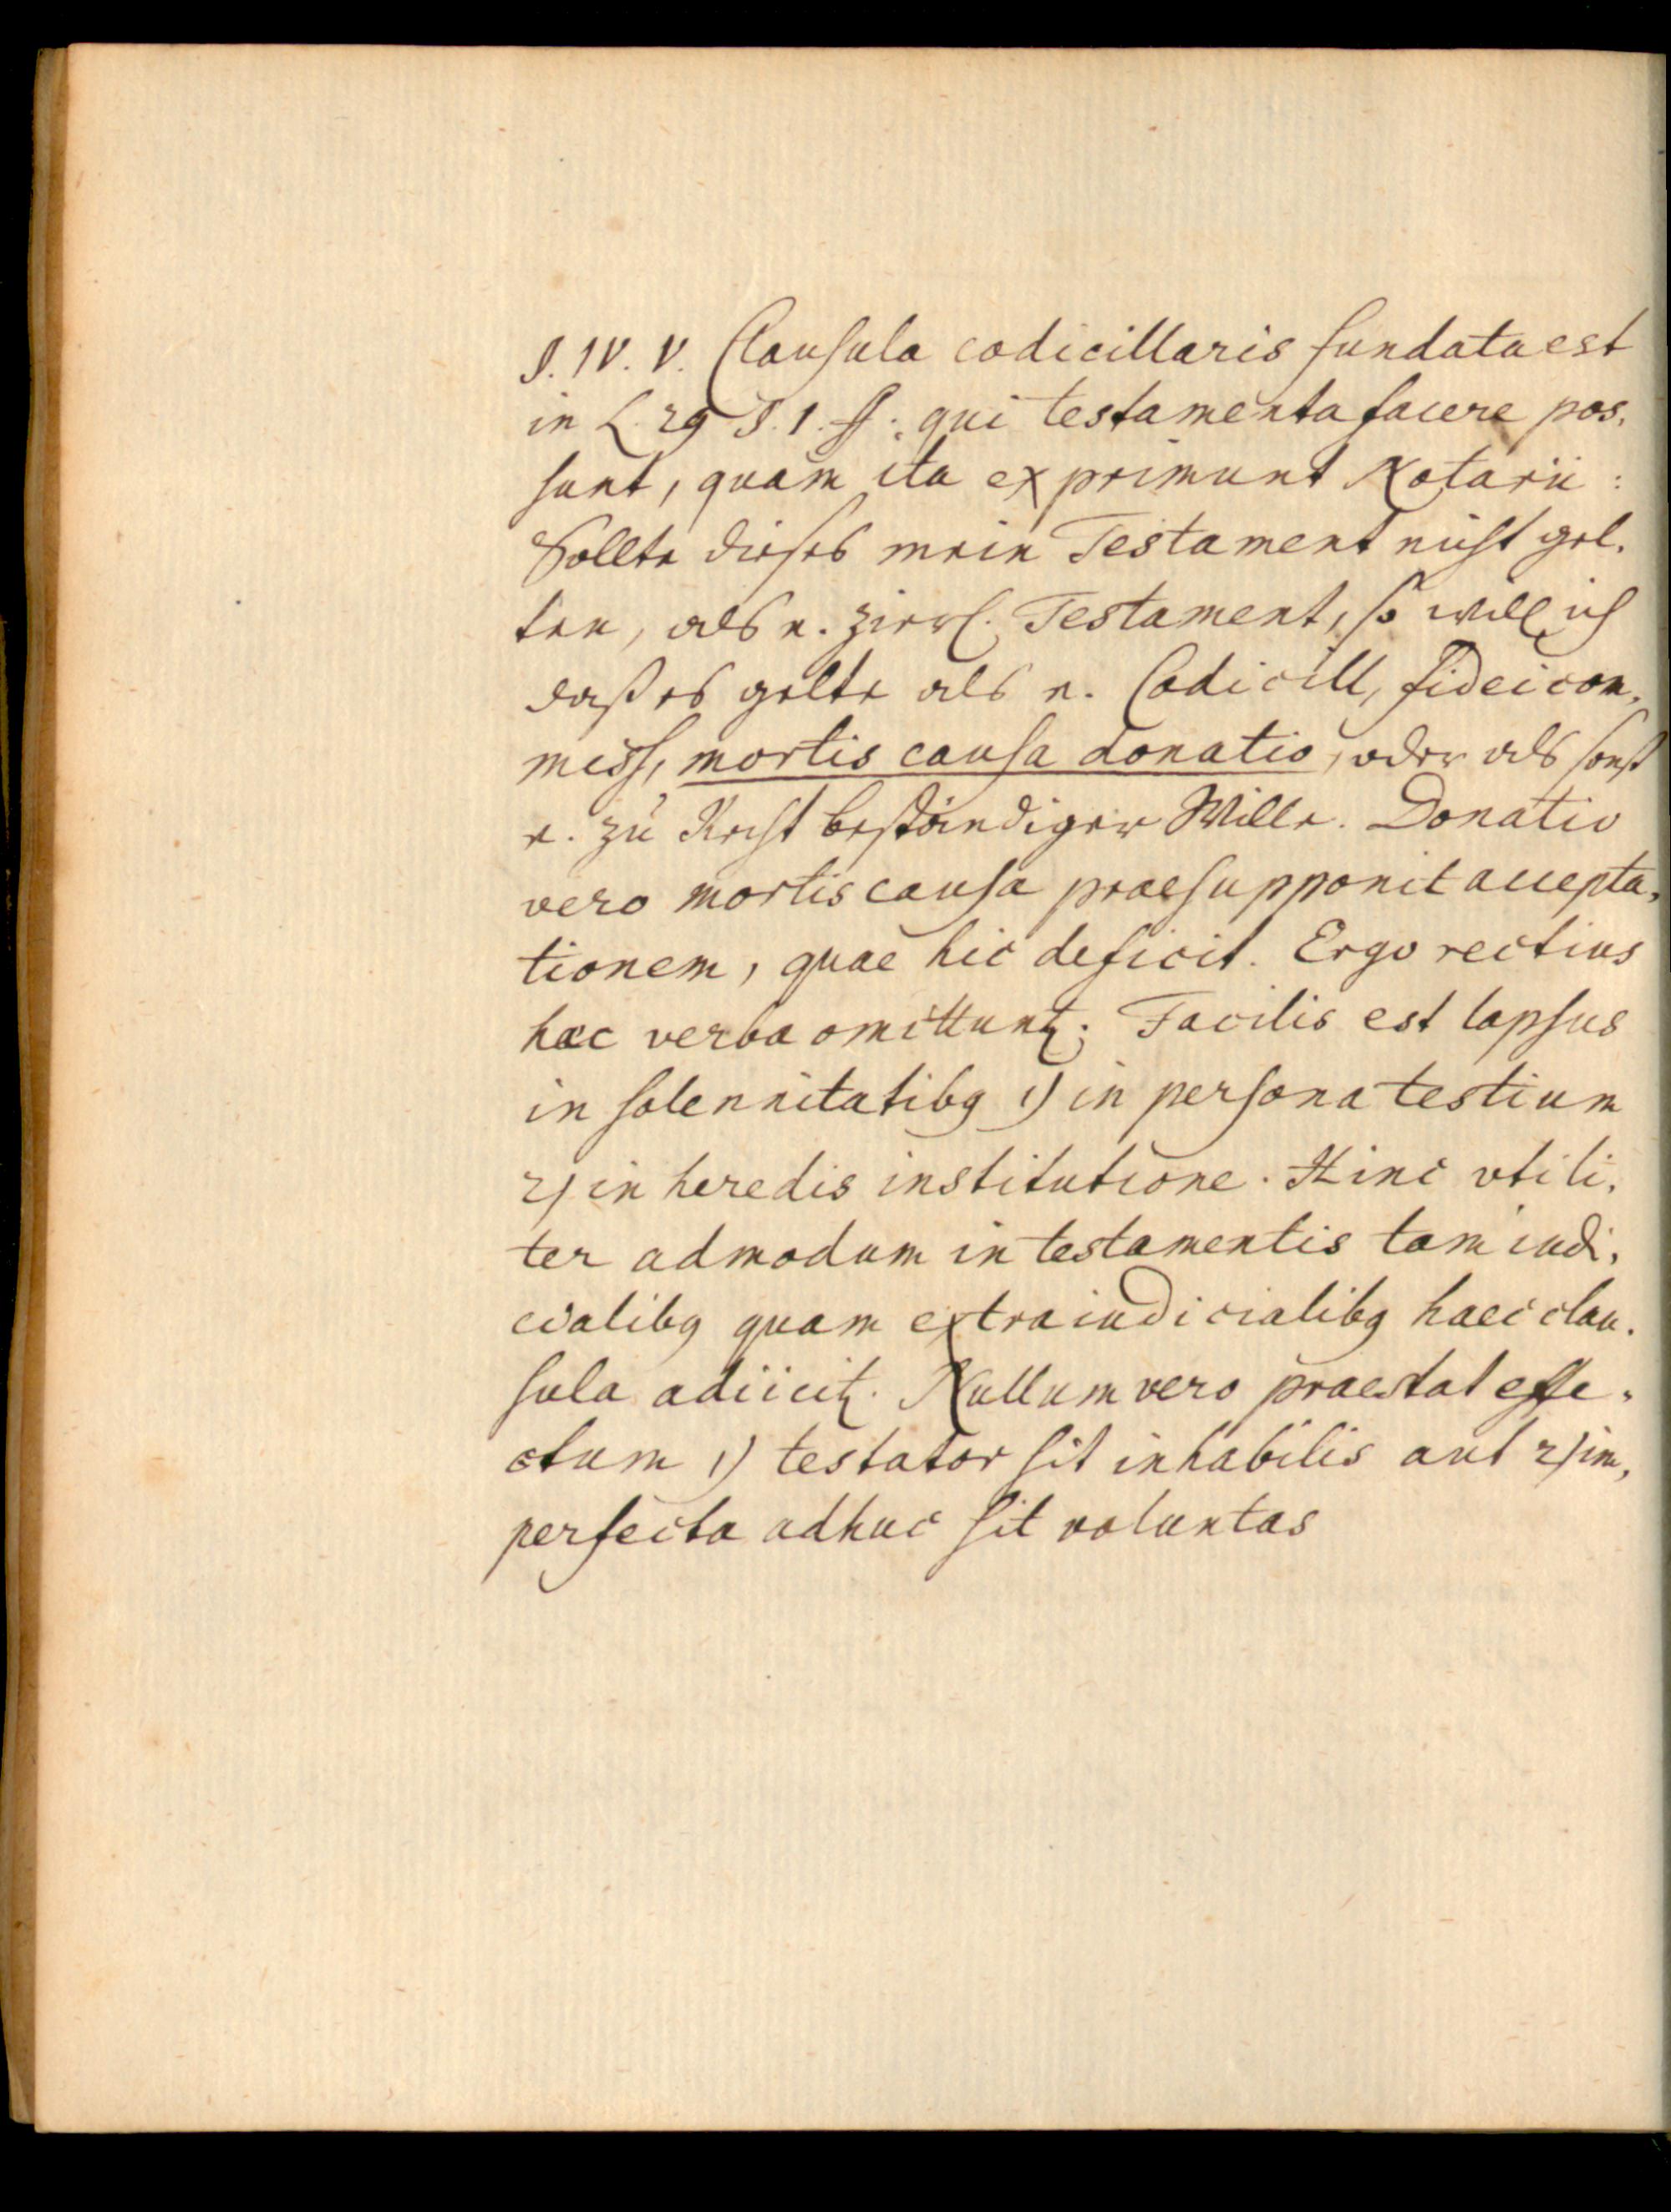 §. IV. V. Clausula codicillaris fundata est
in L. 29 §. 1. ff. qui testamenta facere pos-
sunt, quam ita exprimunt Notarii:
Sollte dieses mein Testament nicht gel-
ten, als e. zierl. Testament, so will ich
daß es gelte als e. Codicill, fideicom-
miss, mortis causa donatio, oder als sonst
e. zu Recht beständiger Wille. Donatio
vero mortis causa praesupponit accepta-
tionem, quae hic deficit. Ergo rectius
haec verba omittunt͛. Facilis est lapsus
in solennitatibꝯ 1) in persona testium
2) in heredis institutione. Hinc vtili-
ter admodum in testamentis tam iudi-
cialibꝯ quam extraiudicialibꝯ haec clau-
sula adiicit͛. Nullum vero praestat effe-
ctum 1) testator sit inhabilis aut 2) im-
perfecta adhuc sit voluntas